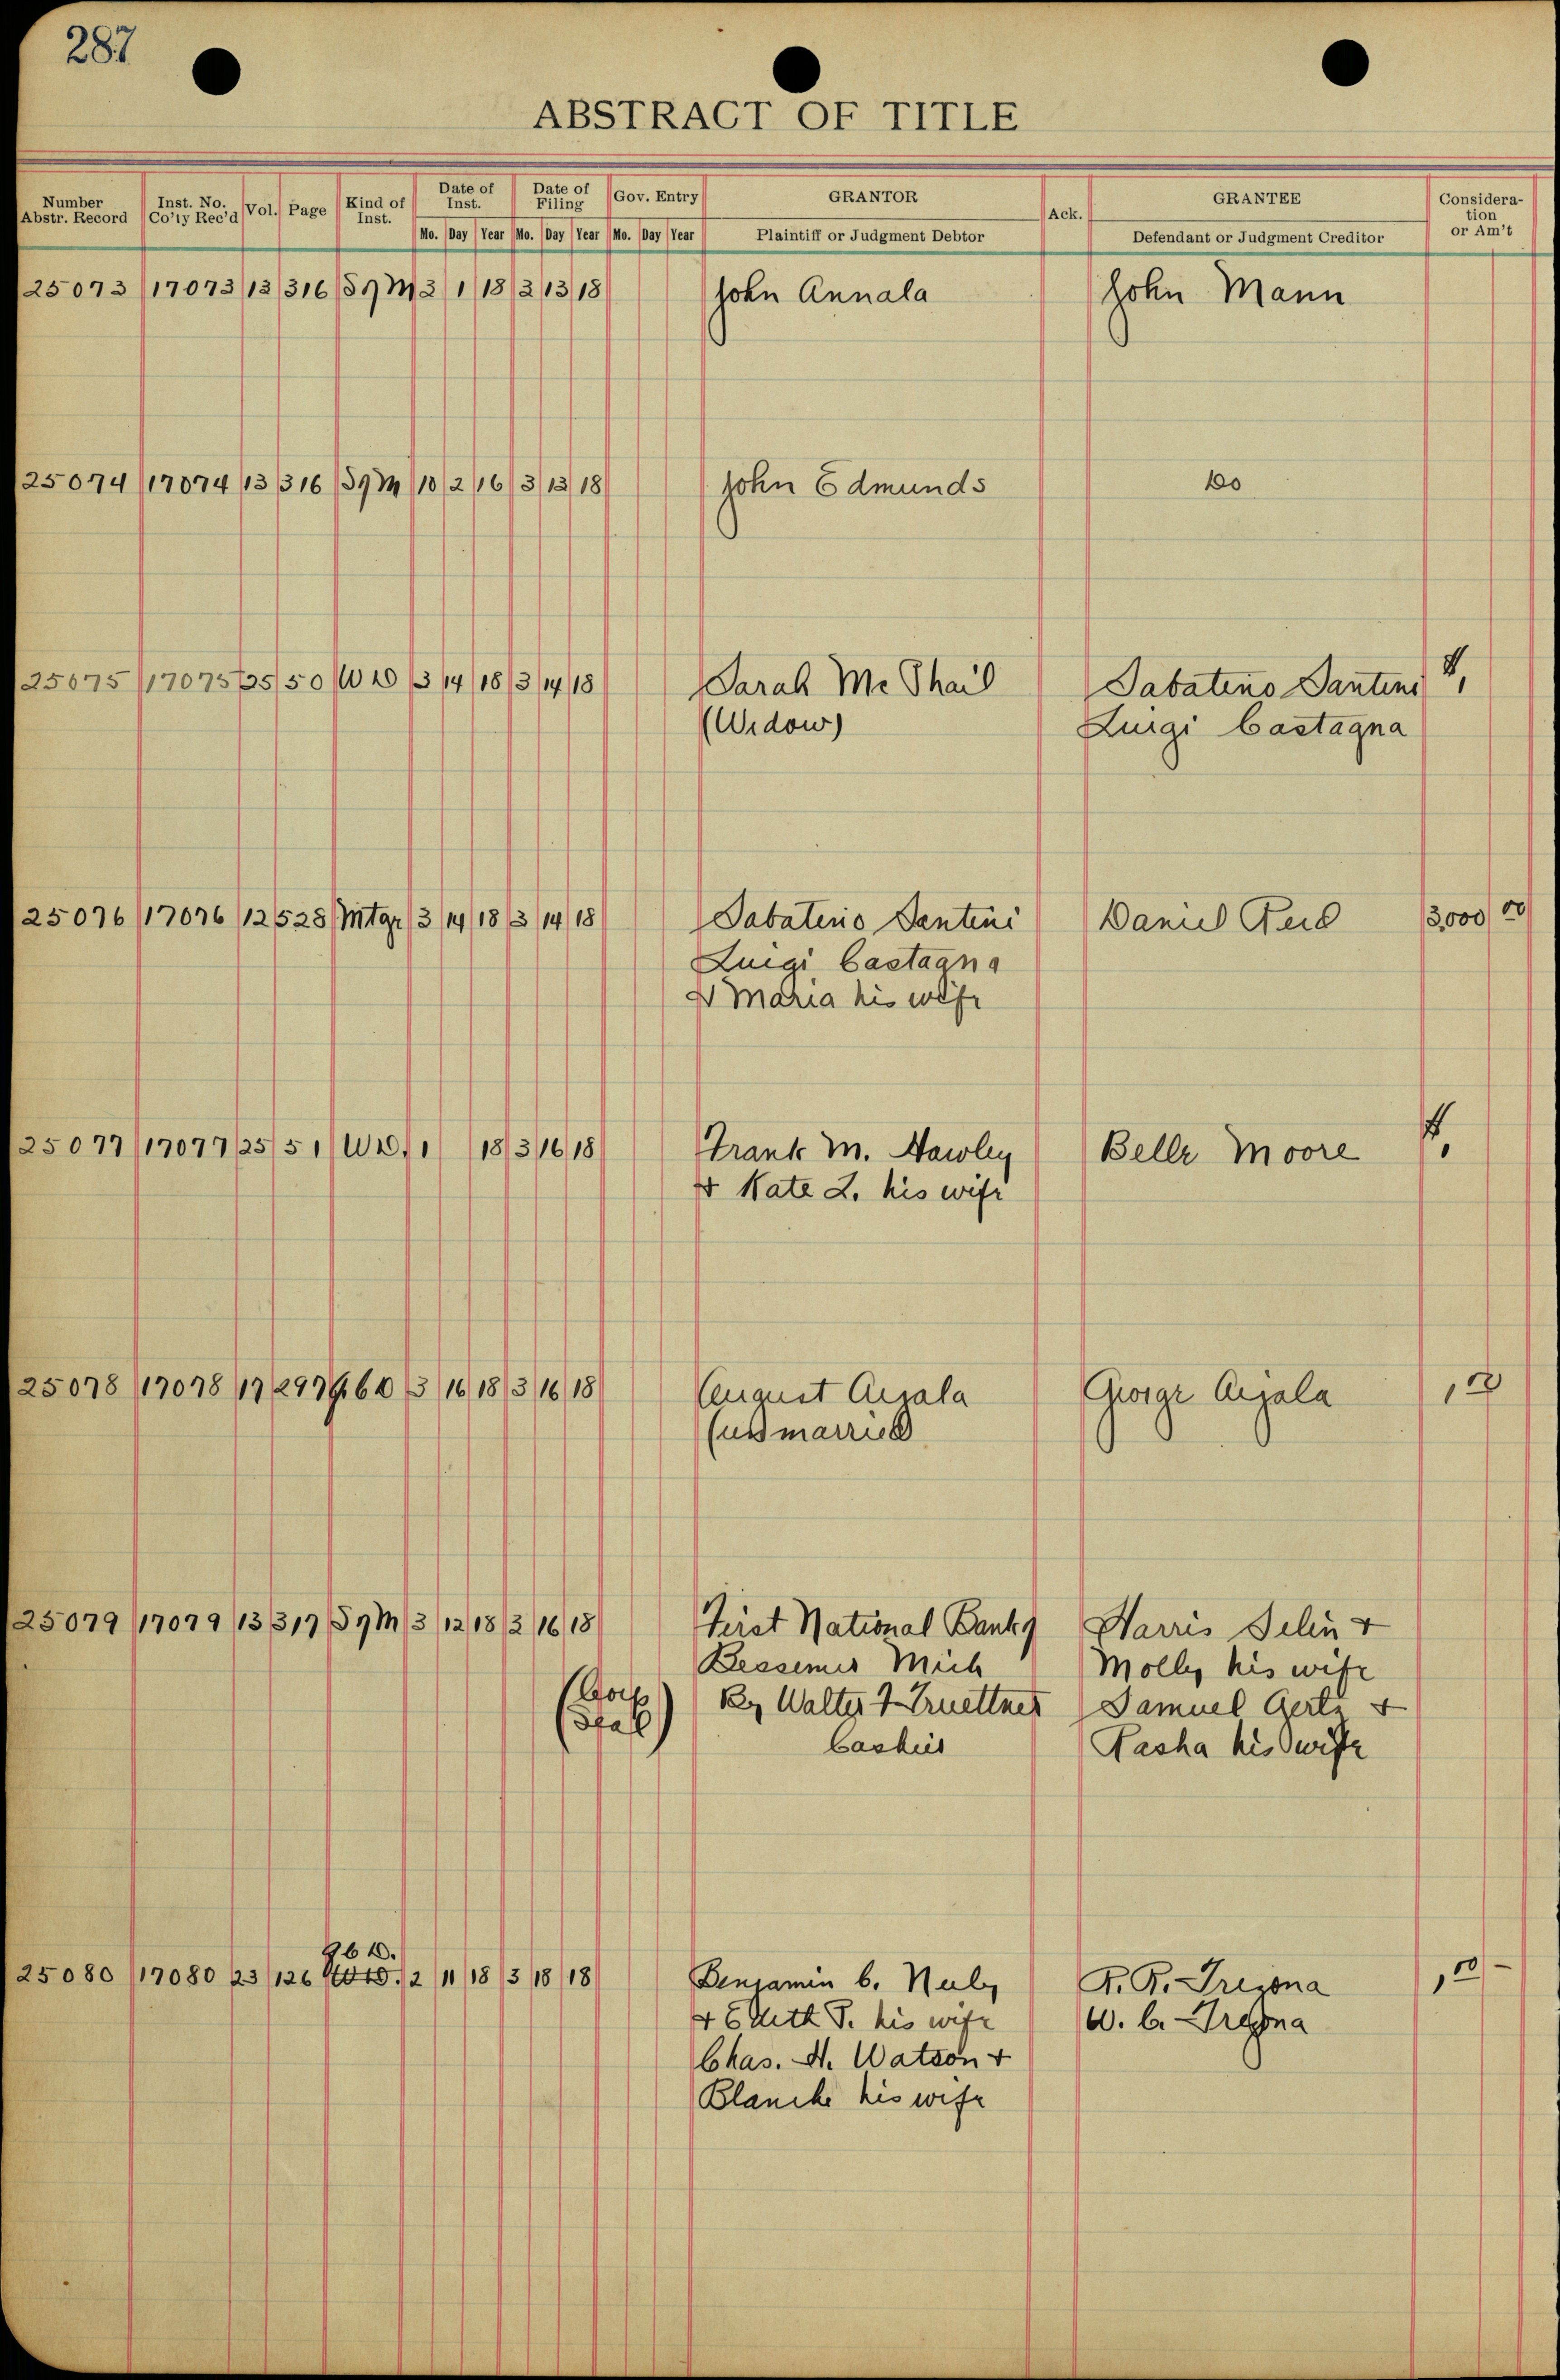 287
ABSTRACT OF TITLE
Number Abstr. Record Inst. No. Co'ty Rec'd Vol. Page Kind of Inst. Date of Inst. Date of Filing Gov. Entry GRANTOR Ack. GRANTEE Considera- tion or Am't
Mo. Day Year Mo. Day Year Mo. Day Year Plaintiff or Judgment Debtor Defendant or Judgment Creditor
25073 17073 13 316 M 3 1 18 3 13 18 John Annala John Mann
25074 17074 13 316 M 10 2 16 3 13 18 John Edmunds Do
25075 17075 25 50 WD 3 14 18 3 14 18 Sarah Mc Phail Sabatino Santini
(Widow) Luigi Castagna
25076 17076 12 528 Mtge 3 14 18 3 14 18 Sabatino Santini Daniel Reid 3,000 00
Luigi Castagna
& Maria his wife
25077 17077 25 51 WD. 1 18 3 16 18 Frank M. Hawley Belle Moore
& Kate L. his wife
25078 17078 17 297 QCD 3 16 18 3 16 18 August George 1,00
(unmarried
25079 17079 13 317 M 3 12 18 3 16 18 First National Bank of Harris Selin &
Bessemer Mich Molly his wife
(Corp By Walter F Truettner Samuel Gertz &
Seal) Cashier Rasha his wife
QCD.
25080 17080 23 126 WD. 2 11 18 3 18 18 Benjamin C. Neely R. R. Trezona 1,00 -
& Edith T. his wife W. C. Trezona
Chas. H. Watson &
Blanche his wife